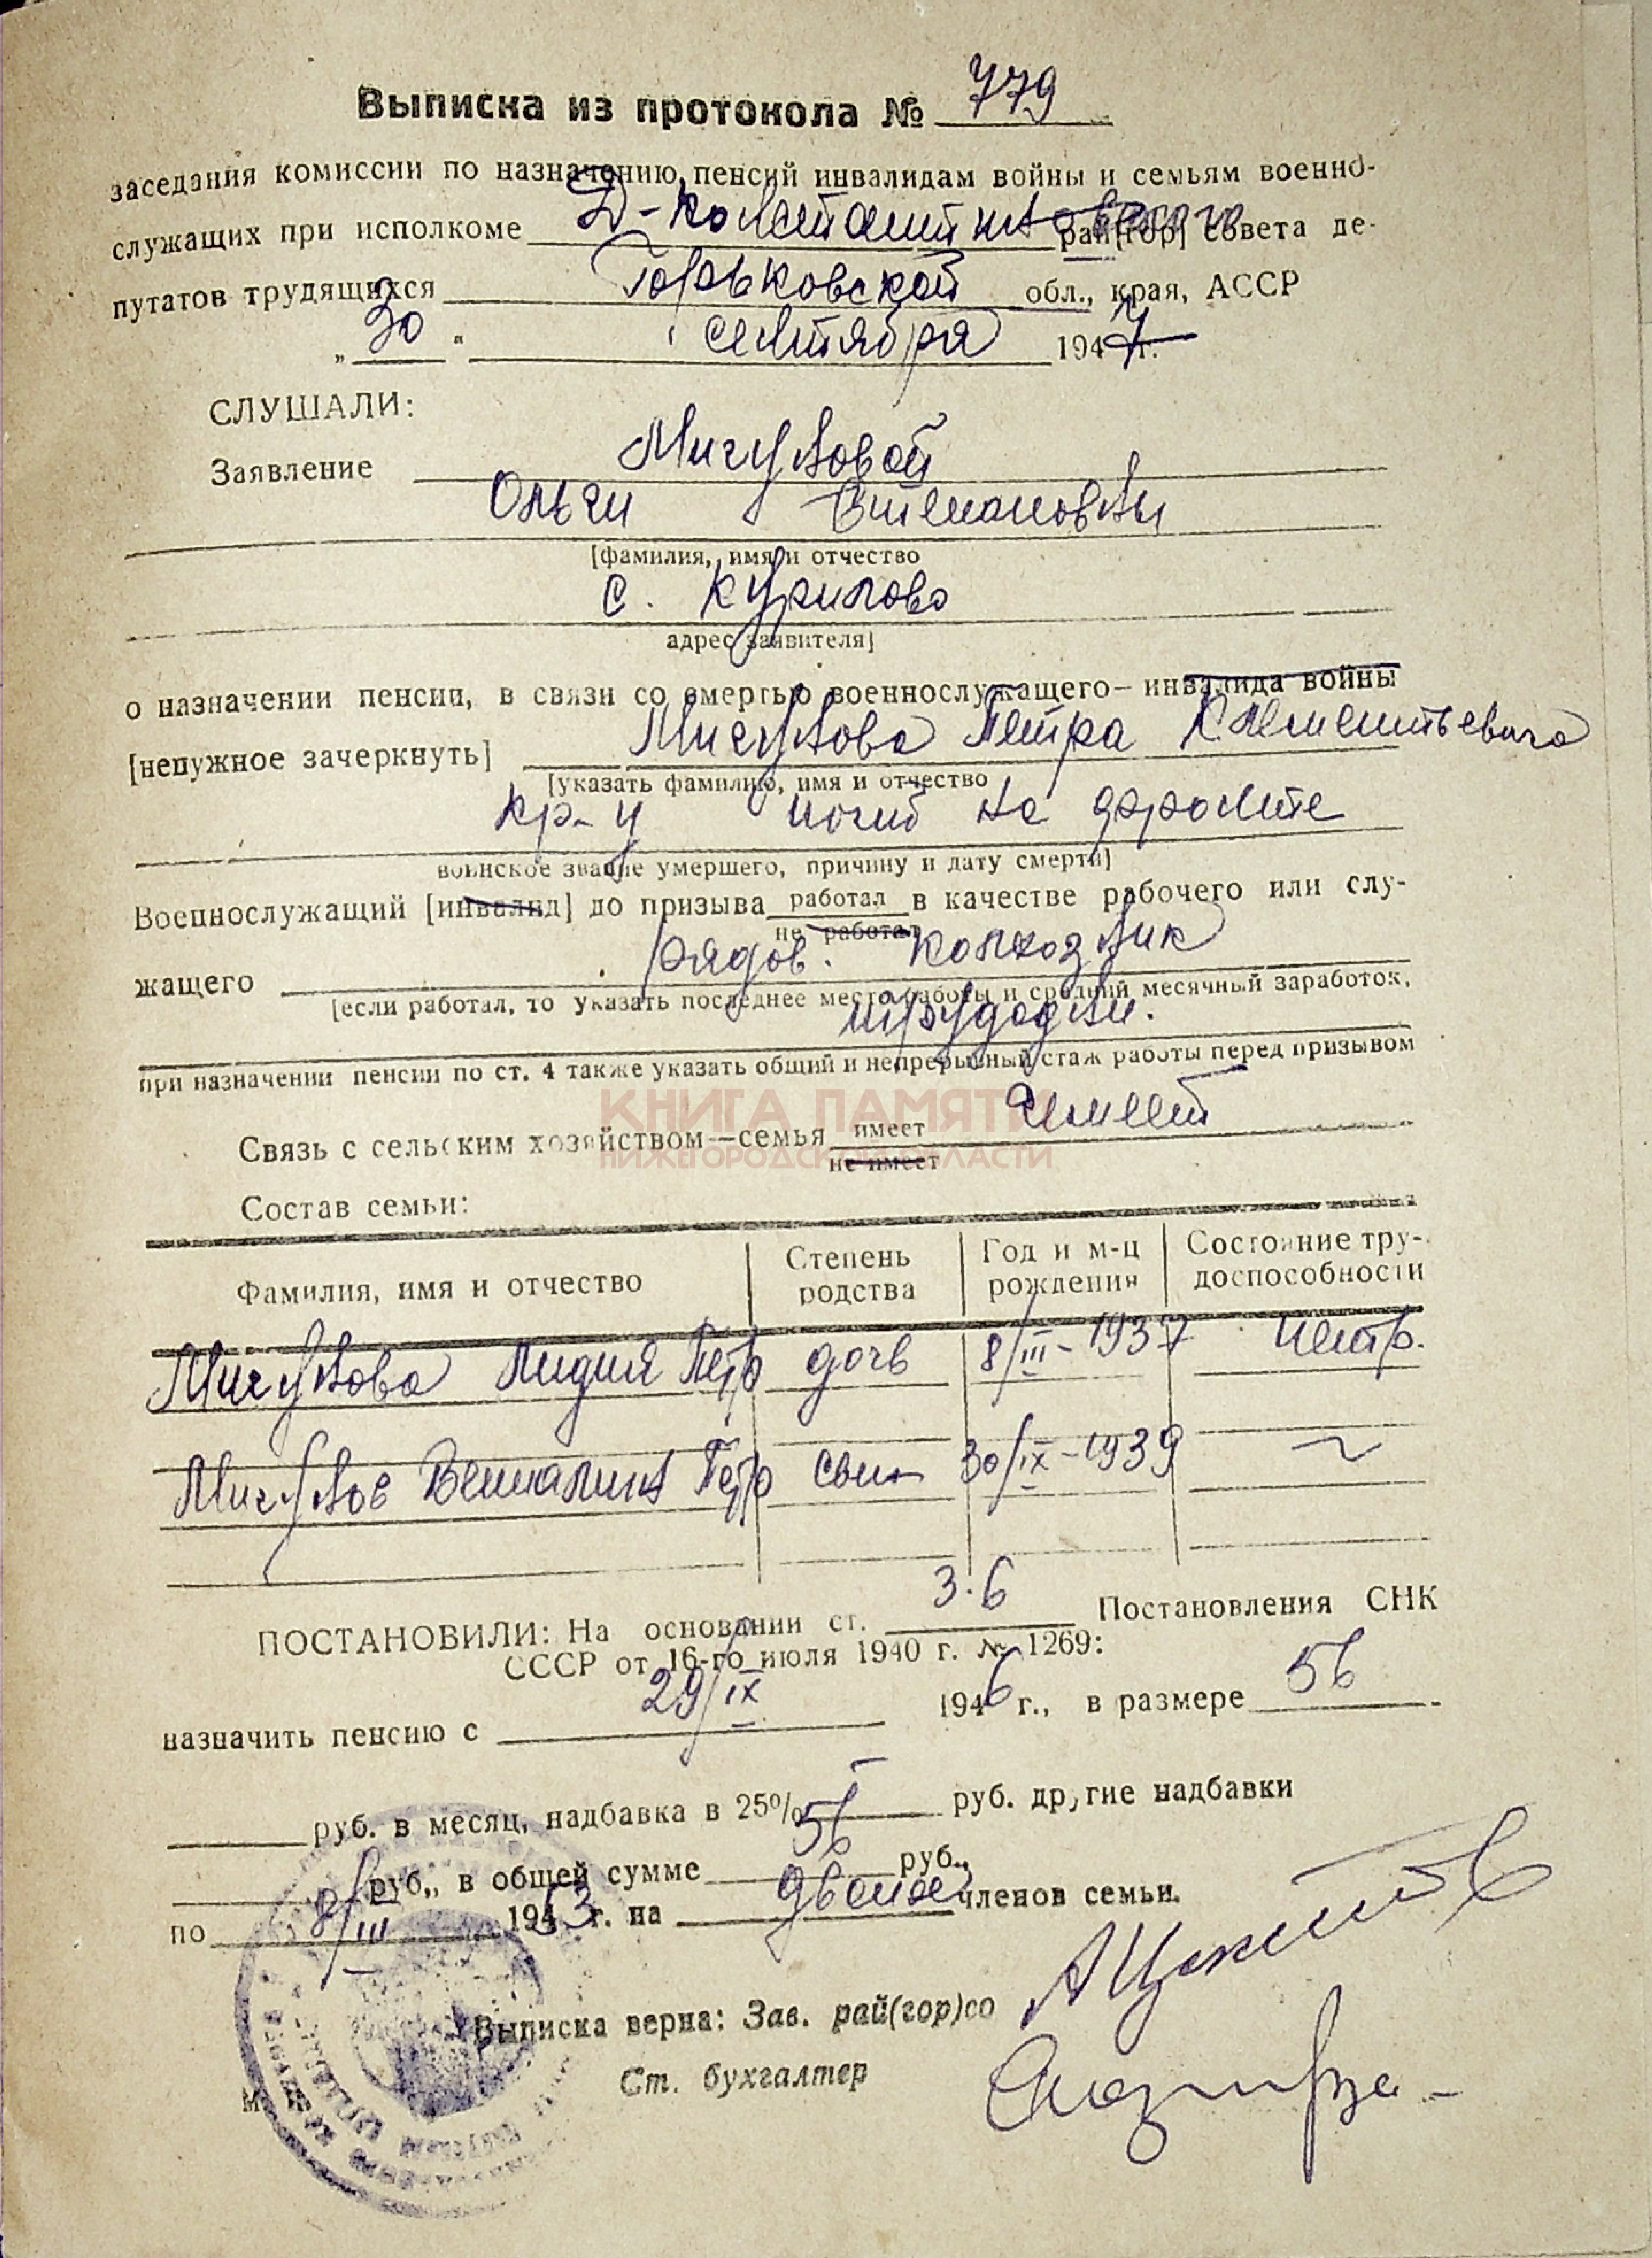 Выписка из протокола № 779
заседания комиссии по назначению пенсий инвалидам войны и семьям военно-
служащих при исполкоме Д-Константиновского рай[гор] совета де-
путатов трудящихся Горьковской обл., края, АССР
„30“ сентября 1947 г.
СЛУШАЛИ:
Заявление Мигуновой
Ольги Степановны
[фамилия, имя и отчество
с. Курилово
адрес заявителя]
о назначении пенсии, в связи со смертью военнослужащего—инвалида войны
[ненужное зачеркнуть] Мигунова Петра Клементьевича
[указать фамилию, имя и отчество
кр-ц погиб на фронте
воинское звание умершего, причину и дату смерти]
Военнослужащий [инвалид] до призыва работал в качестве рабочего или слу-
не работал
жащего рядов. колхозник
[если работал, то указать последнее место работы и средний месячный заработок,
трудодни.
при назначении пенсии по ст. 4 также указать общий и непрерывный стаж работы перед призывом
КНИГА ПАМЯТИ
Связь с сельским хозяйством—семья имеет имеет
НИЖЕГОРОДСКОЙ ОБЛАСТИ
не имеет
Состав семьи:
Фамилия, имя и отчество Степень родства Год и м-ц рождения Состояние тру-доспособности
Мигунова Лидия Петр дочь 8/III-1937 нетр.
Мигунов Вениамин Петр сын 30/IX-1939 ~
ПОСТАНОВИЛИ: На основании ст. 3.6 Постановления СНК
СССР от 16-го июля 1940 г. № 1269:
назначить пенсию с 29/IX 1946 г., в размере 56
руб. в месяц, надбавка в 25% — руб. другие надбавки
руб., в общей сумме 56 руб.,
по 8/III 1953 г. на двоих членов семьи.
Выписка верна: Зав. рай(гор)со
Ст. бухгалтер